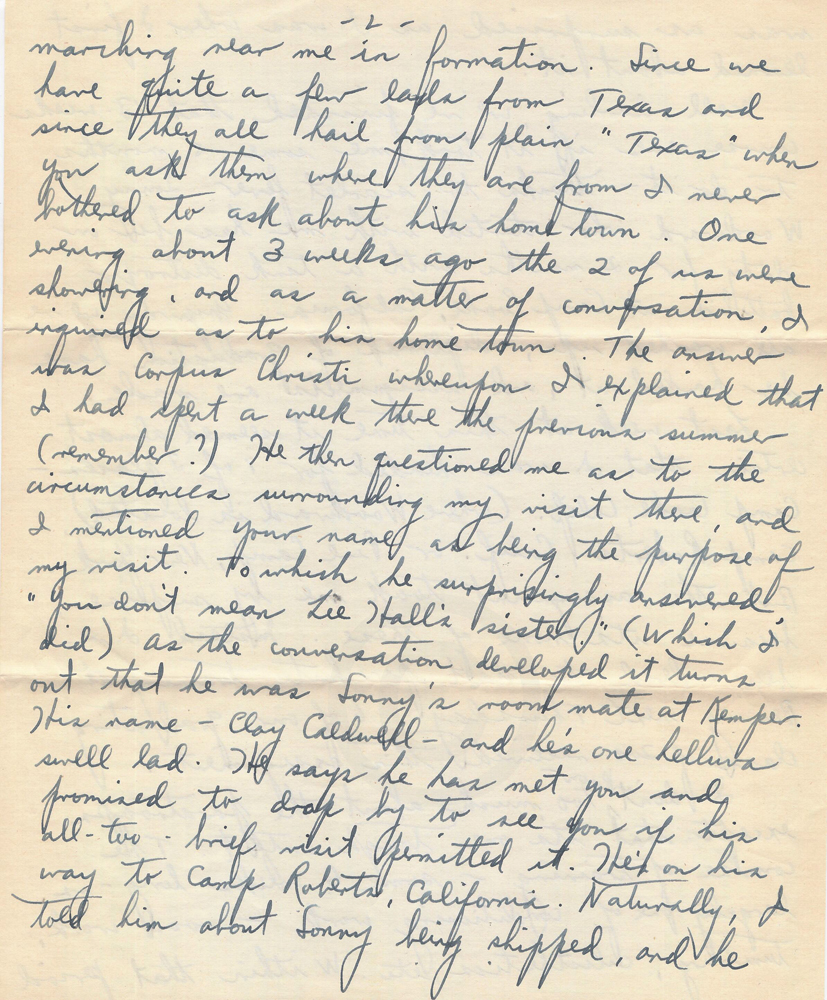 - 2 -
marching near me in formation. Since we
have quite a few lads from Texas and
since they all hail from plain "Texas" when
you ask them where they are from I never
bothered to ask about his home town. One
evening about 3 weeks ago the 2 of us were
showering, and as a matter of conversation, I
inquired as to his home town. The answer
was Corpus Christi whereupon I explained that
I had spent a week there the previous summer
(remember?) He then questioned me as to the
circumstances surrounding my visit there, and
I mentioned your name as being the purpose of
my visit. To which he surprisingly answered
"You don't mean Lee Hall's sister." (Which I
did) As the conversation developed it turns
out that he was Sonny's room mate at Kemper.
His name - Clay Caldwell - and he's one helluva
swell lad. He says he has met you and
promised to drop by to see you if his
all-too-brief visit permitted it. He's on his
way to Camp Roberts, California. Naturally, I
told him about Sonny being shipped, and he